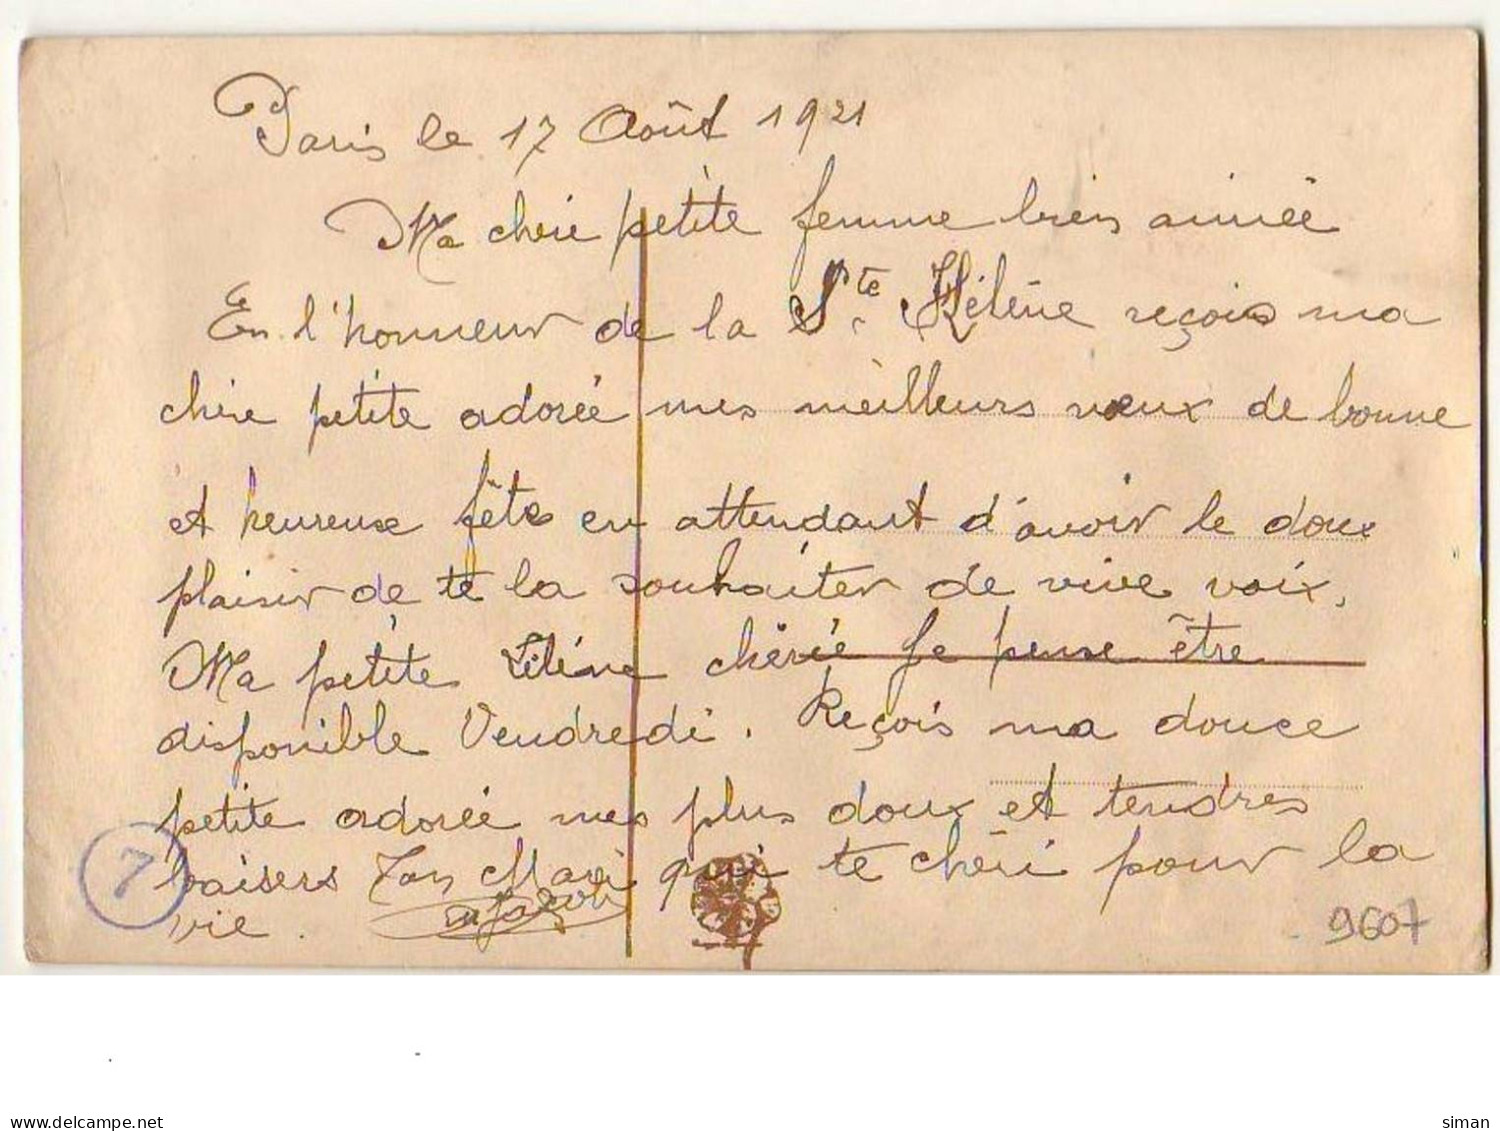 Paris le 17 Août 1921
Ma chère petite femme bien aimée
En l'honneur de la Ste Hélène reçois ma
chère petite adorée mes meilleurs vœux de bonne
et heureuse fête en attendant d'avoir le doux
plaisir de te la souhaiter de vive voix.
Ma petite Hélène chérie je pense être
disponible Vendredi. Reçois ma douce
petite adorée mes plus doux et tendres
baisers Ton Mari qui te chéri pour la
vie.
7
9607
www.delcampe.net
siman